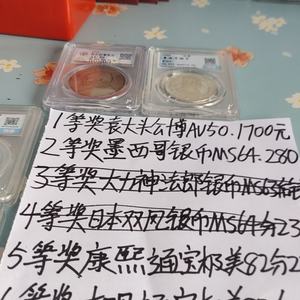 1等奖袁大头公博AU50.1700元
2等奖墨西哥银币MS64.280
3等奖大力神法郎银币MS63
4等奖日本双凤银币MS64分23
5等奖康熙通宝极美82分2